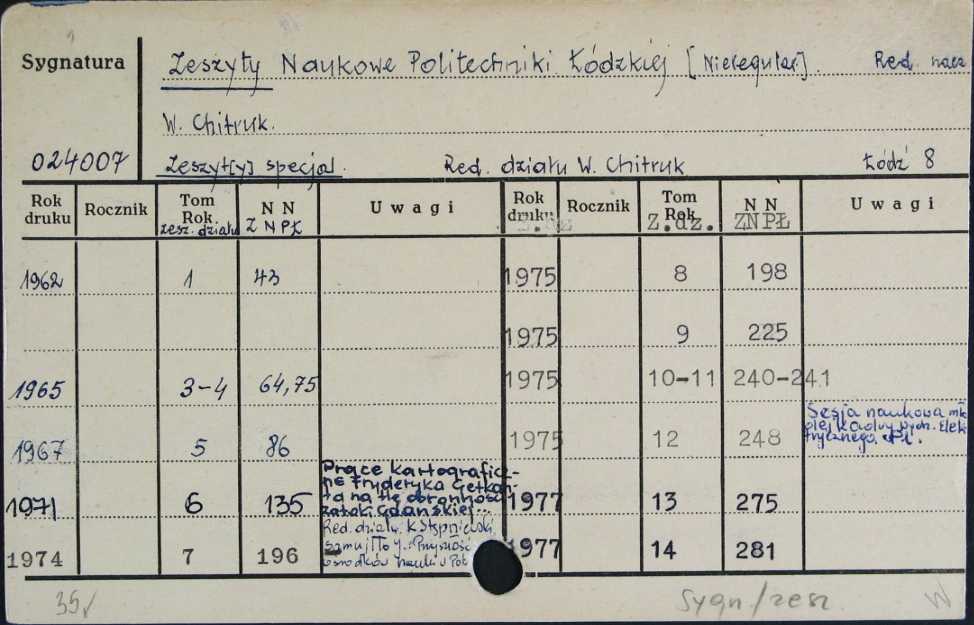 Sygnatura Zeszyty Naukowe Politechniki Łódzkiej [Nieregular]. Red. nacz.
W. Chitruk.
024007 Zeszyt[y] specjal. Red. działu W. Chitruk Łódź 8
Rok druku Rocznik Tom Rok zesz. działu N N Z N P Ł Uwagi Rok druku Rocznik Tom Rok Z.dz. N N ZNPŁ Uwagi
1962 1 43 1975 8 198
1975 9 225
1965 3-4 64,75 1975 10-11 240-241
1967 5 86 1975 12 248 Sesja naukowa
1971 6 135 Prace kartograficz-
ne Fryderyka Getkan-
ta na tle obronności
zatoki Gdańskiej... 1977 13 275
1974 7 196 Red. działu K. 1977 14 281
35 Sygn/zesz W